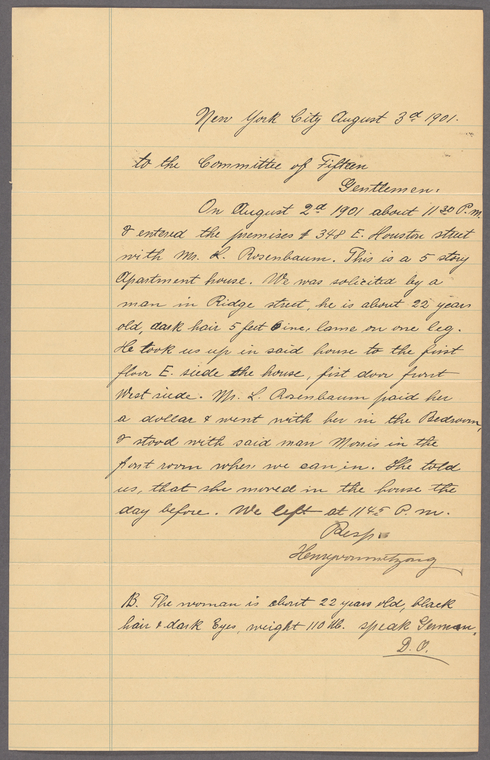 New York City August 3d 1901.
to the Committee of Fifteen
Gentlemen.
On August 2d 1901 about 1130 P.m.
I entered the premises # 348 E. Houston street
with Mr. L. Rosenbaum. This is a 5 story
Apartment house. We was soliceted by a
man in Ridge street, he is about 22 years
old, dark hair 5 feet 6 inc, lame on one leg.
He took us up in said house to the first
floor E. siede the house, fist door front
West siede. Mr. L. Rosenbaum paid her
a dollar & went with her in the Bedroom,
I stood with said man Morris in the
front room when we can in. She told
us, that she moved in the house the
day before. We left at 1145 P.m.
Resp
B. The woman is about 22 years old, black
hair & dark Eyes, weight 110 lb. speak German,
D.O.